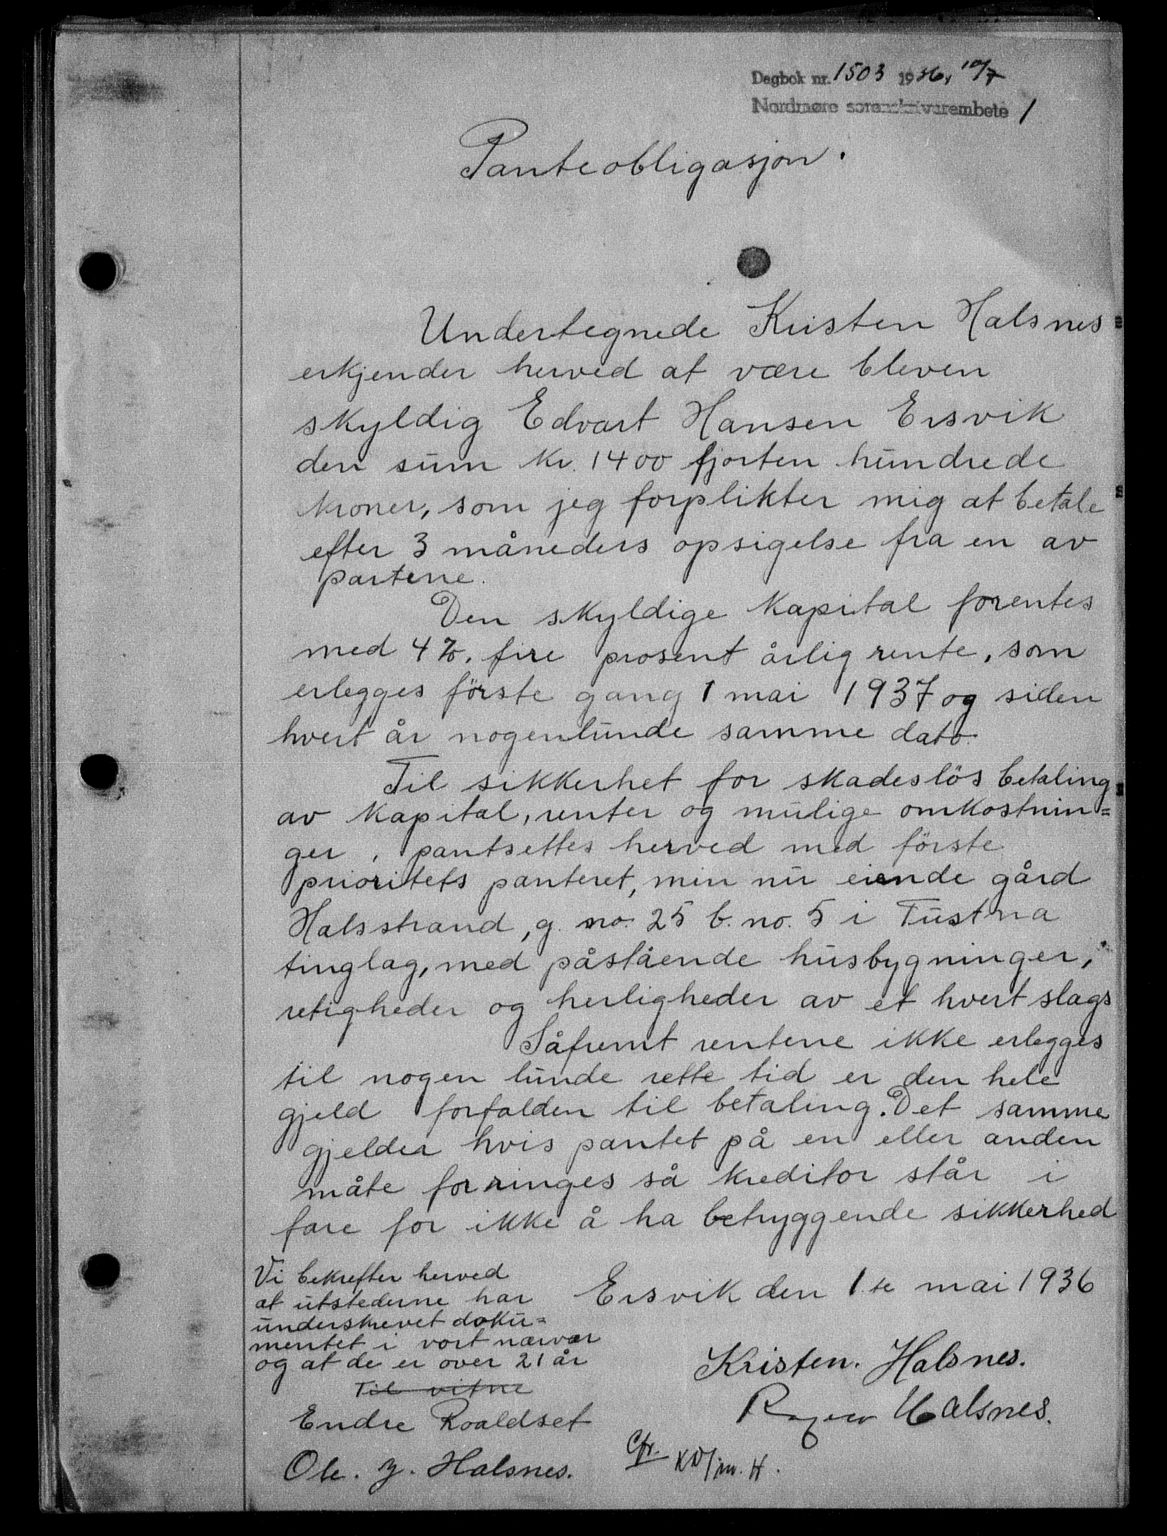 Dagbok nr. 1503 1936, 10/7
Nordmøre sorenskrivarembete 1
Panteobligasjon.
Undertegnede Kristen Halsnes
erkjender herved at være bleven
skyldig Edvart Hansen Ersvik
den sum kr. 1400 fjorten hundrede
kroner, som jeg forplikter mig at betale
efter 3 måneders opsigelse fra en av
partene.
Den skyldige kapital forentes
med 4%. fire prosent årlig rente, som
erlegges förste gang 1 mai 1937 og siden
hvert år nogenlunde samme dato.
Til sikkerhet for skadeslös betaling
av kapital, renter og mulige omkostnin=
ger, pantsettes herved med förste
prioritets panteret, min nu eiende gård
Halsstrand, g. no. 25 b. no. 5 i Tustna
tinglag, med påstående husbygninger,
retigheder og herligheder av et hvert slags
Såfremt rentene ikke erlegges
til nogen lunde rette tid er den hele
gjeld forfalden til betaling. Det samme
gjelder hvis pantet på en eller anden
måte forringes så kreditor står i
fare for ikke å ha betryggende sikkerhed
Ersvik den 1ste mai 1936
Kristen. Halsnes.
Halsnes.
Vi bekrefter herved
at utstederne har
underskrevet doku=
mentet i vort nærvær
og at de er over 21 år
Til vitne
Endre Roaldset
Ole. J. Halsnes.
Cfr.